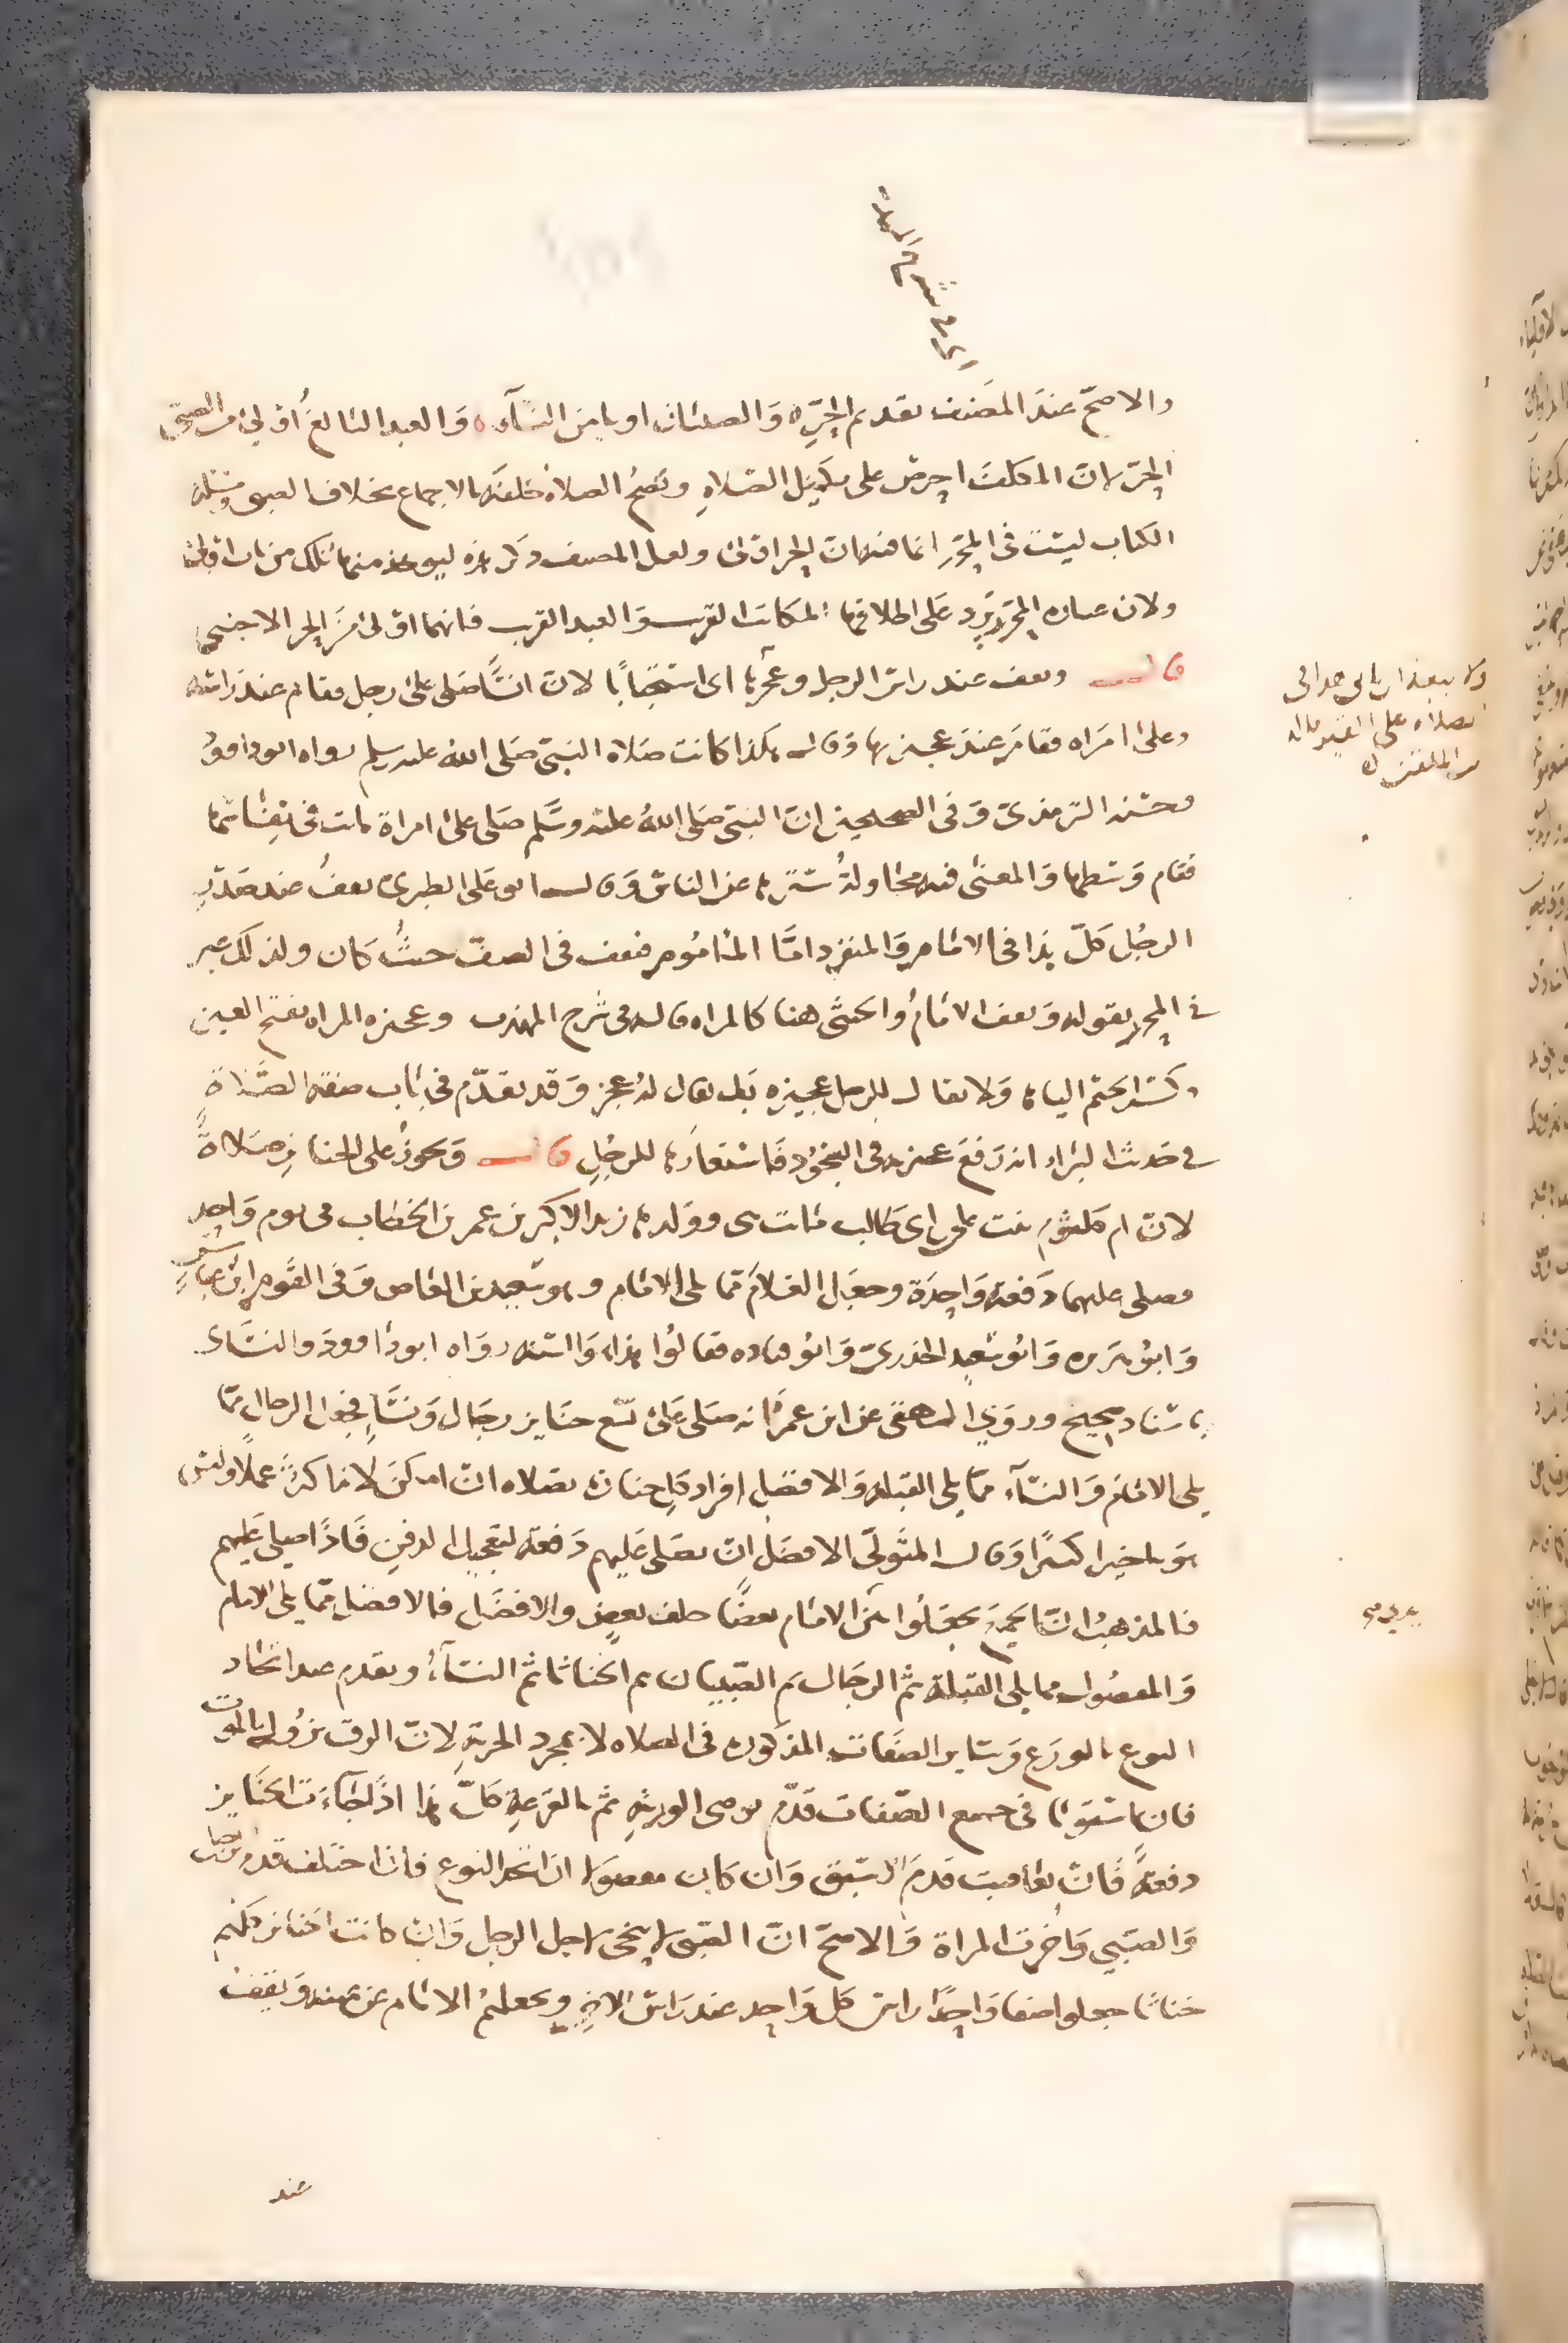 والاصح عند المصنف تقديم الحرة والصبيان اولى من النساء والعبد البالغ اولى من الصبي
الحر لان المكلف احرص على تكميل الصلاة وتصح الصلاة خلفه بالاجماع بخلاف الصبي ومسئلة
الكتاب ليست في المحرر انما فيه ان الحر اولى ولعل المصنف ذكر هذه ليوخذ منها تلك من باب اولى
ولان عبارة المحرر يرد على اطلاقها المكاتب القريب والعبد القريب فانهما اولى من الحر الاجنبي
قال ويقف عند راس الرجل وعجزها اي استحبابا لان انسا صلى على رجل فقام عند راسه
وعلى امراة فقام عند عجيزتها وقال هكذا كانت صلاة النبي صلى الله عليه وسلم رواه ابو داوود
وحسنه الترمذي وفي الصحيحين ان النبي صلى الله عليه وسلم صلى على امراة ماتت في نفاسها
فقام وسطها والمعنى فيه محاولة سترها عن الناس وقال ابو على الطبري يقف عند صدر
الرجل كل هذا في الامام والمنفرد اما الماموم فيقف في الصف حيث كان ولذلك عبر
في المحرر بقوله ويقف الامام والخنثى هنا كالمراة قاله في شرح المهذب وعجيزة المراة بفتح العين
وكسر الجيم الياها ولا يقال للرجل عجيزة بل يقال له عجز وقد تقدم في باب صفة الصلاة
في حديث البراء انه رفع عجيزته في السجود فاستعارها للرجل قال ويجوز على الجنايز صلاة
لان ام كلثوم بنت علي بن ابي طالب ماتت هي وولدها زيد الاكبر بن عمر بن الخطاب في يوم واحد
فصلي عليهما دفعة واحدة وجعل الغلام مما يلي الامام وهو سعيد بن العاص وفي القوم ابن عباس
وابو هريرة وابو سعيد الخدري وابو قتادة فقالوا هذا هو السنة رواه ابو داوود والنساى
باسناد صحيح وروى البيهقي عن ابن عمر انه صلى على تسع جنايز رجال ونساء فجعل الرجال مما
يلي الامام والنساء مما يلي القبلة والافضل افراد كل جنازة بصلاة ان امكن لانه اكثر عملا وليس
هو تاخيرا كثيرا وقال المتولي الافضل ان يصلى عليهم دفعة لتعجيل الدفن فاذا صلي عليهم
فالمذهب ان يجعلوا بين الامام بعضا خلف بعض والافضل فالافضل مما يلي الامام
والمفضول مما يلي القبلة ثم الرجال ثم الصبيان ثم الخناثا ثم النساء ويقدم عند اتحاد
النوع بالورع وساير الصفات المذكورة في الصلاة لا بمجرد الحرية لان الرق يزول بالموت
فان استووا في جميع الصفات قدم برضى الورثة ثم بالقرعة كل هذا اذا جاءت الجنايز
دفعة فان تعاقبت قدم الاسبق وان كان مفضولا ان اتحد النوع فان اختلف قدم الرجل
والصبي واخرت المراة والاصح ان الصبي لا ينحى لاجل الرجل وان كانت الجنايز كلهم
خناثا جعلوا صفا واحدا راس كل واحد عند رجل الاخر ويجعلهم الامام عن يمينه ويقف